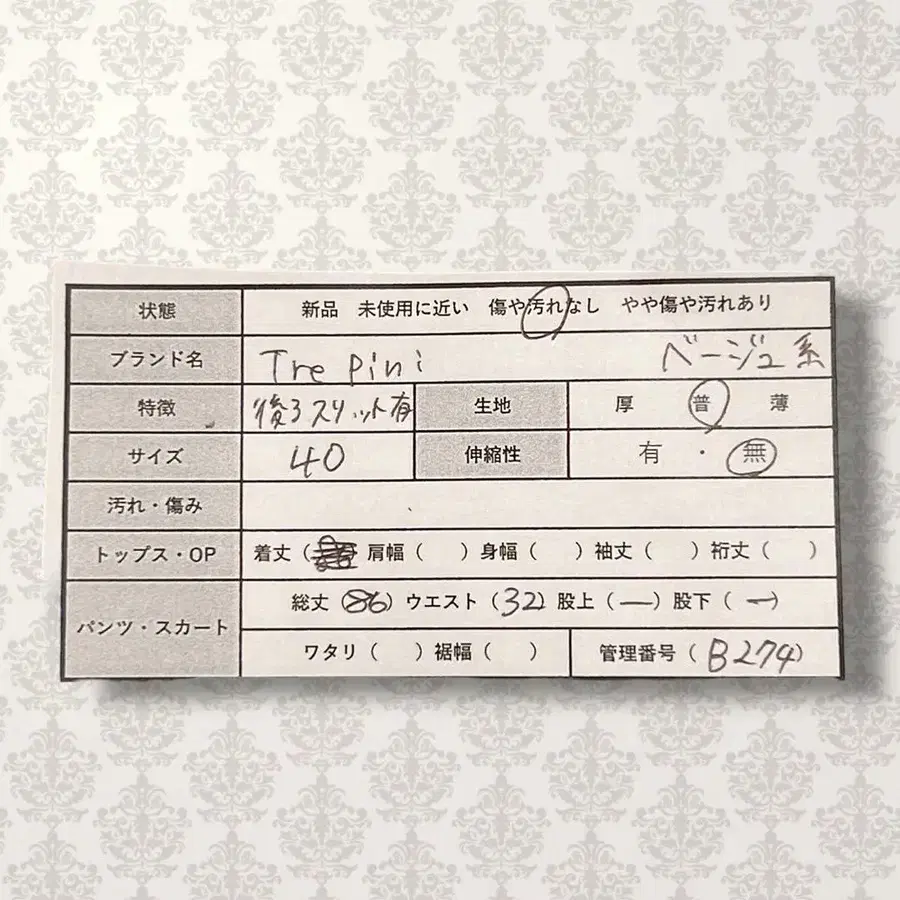 状態 新品 未使用に近い 傷や汚れなし やや傷や汚れあり
ブランド名 Tre pini ベージュ系
特徴 後ろスリット有 生地 厚 普 薄
サイズ 40 伸縮性 有 ・ 無
汚れ・傷み
トップス・OP 着丈 ( 肩幅 ( ) 身幅 ( ) 袖丈 ( ) 裄丈 ( )
パンツ・スカート 総丈 (86) ウエスト (32) 股上 (ー) 股下 (ー)
ワタリ ( ) 裾幅 ( ) 管理番号 (B274)